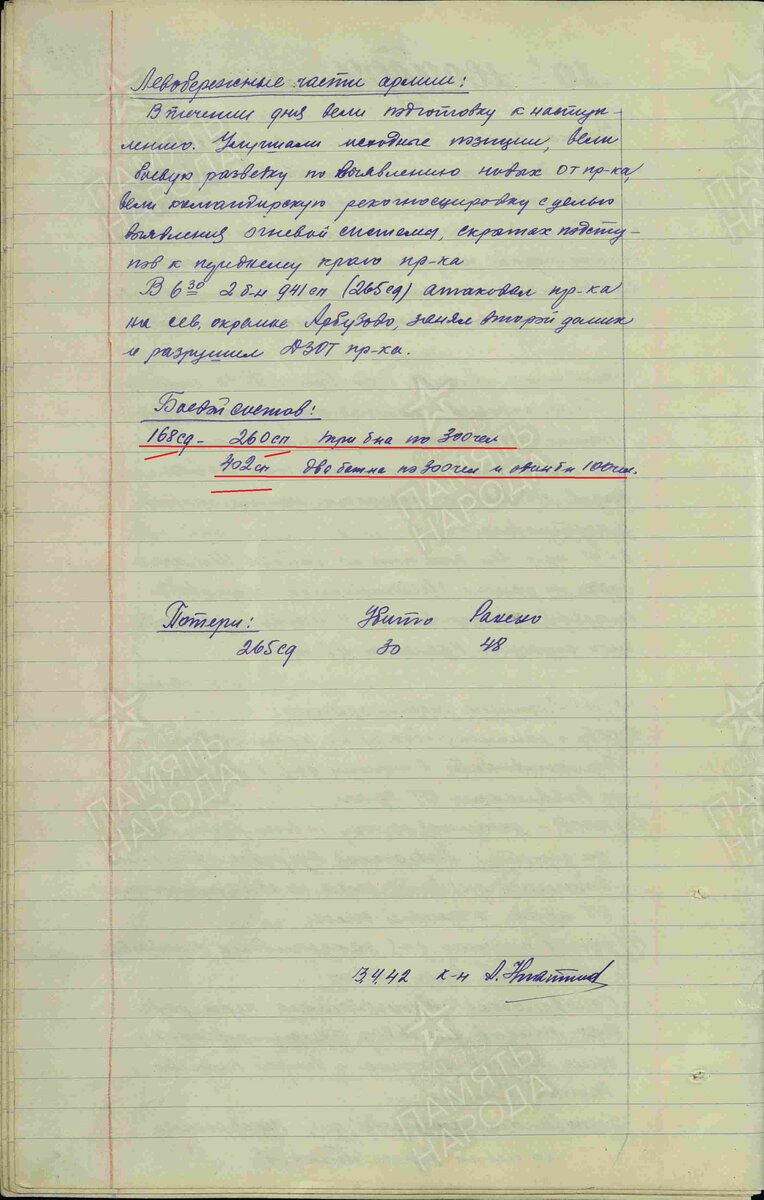 Левобережные части армии:
В течении дня вели подготовку к наступ-
лению. Улучшали исходные позиции, вели
боевую разведку по выявлению новых ОТ пр-ка,
вели командирскую рекогносцировку с целью
выявления огневой системы, скрытых подсту-
пов к переднему краю пр-ка
В 6 30 2 б-н 941сп (265сд) атаковал пр-ка
на сев. окраине Арбузово, занял второй домик
и разрушил ДЗОТ пр-ка.
Боевой состав:
168сд- 260сп три б-на по 300чел
402сп два бат-на по 300чел и один б-н 100чел.
Потери: Убито Ранено
265сд 30 48
13.4.42 к-н
ПАМЯТЬ
НАРОДА
ПАМЯТЬ
НАРОДА
ПАМЯТЬ
НАРОДА
ПАМЯТЬ
НАРОДА